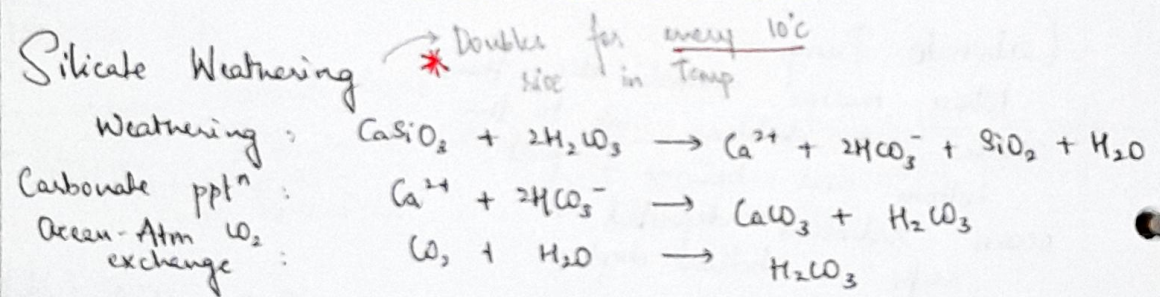 Silicate Weathering → * Doubles for every 10°C
rise in Temp
Weathering : CaSiO₃ + 2H₂CO₃ → Ca²⁺ + 2HCO₃⁻ + SiO₂ + H₂O
Carbonate pptⁿ : Ca²⁺ + 2HCO₃⁻ → CaCO₃ + H₂CO₃
Ocean-Atm CO₂
exchange : CO₂ + H₂O → H₂CO₃